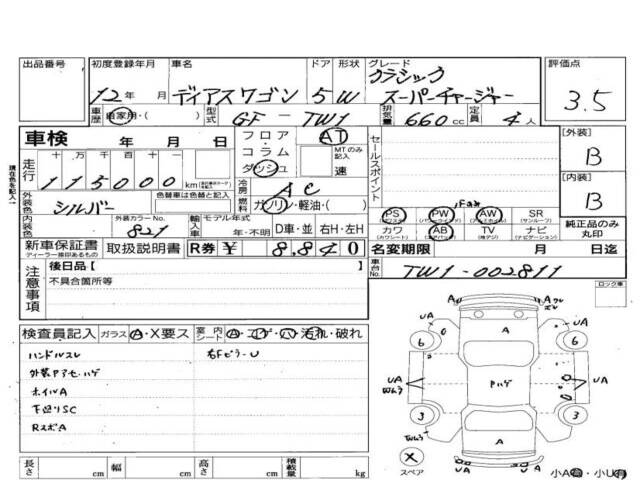 出品番号 初度登録年月 車名 ドア 形状 グレード 評価点
12年 月 ディアスワゴン 5 W クラシック スーパーチャージャー 3.5
車歴 自家用・( ) 型式 GF-TW1 排気量 660cc 定員 4人
車検 年 月 日
フロア・コラム ダッシュ AT MTのみ記入 速
セールスポイント
[外装] B
[内装] B
走行 十万千百十一
115000 km
冷房 AC
外装色 シルバー 色替車は色替と記入
燃料 ガソリン・軽油・( )
内装色 外装カラーNo. 821 輸入車 モデル年式 年・不明 D車・並 右H・左H
PS PW AW SR (サンルーフ)
カワ (カワシート) AB TV ナビ (ナビゲーション)
純正品のみ丸印
新車保証書 ディーラー捺印あるもの 取扱説明書 R券 ¥ 8,840
名変期限 月 日迄
注意事項 後日品[ ]
不具合箇所等
車台No. TW1-002811
ロック車
検査員記入 ガラス A・X要ス 室内シート A・コゲ・穴・汚れ・破れ
ハンドルスレ 右Fピラー U
外装Pアセ・ハゲ
ホイルA
下廻りSC
RスポA
A
UA UA
6 6
UA UA
Pハゲ
3 3
A
スペア
小A・小U
長さ cm 幅 cm 高さ cm 積載量 kg
現在色を記入